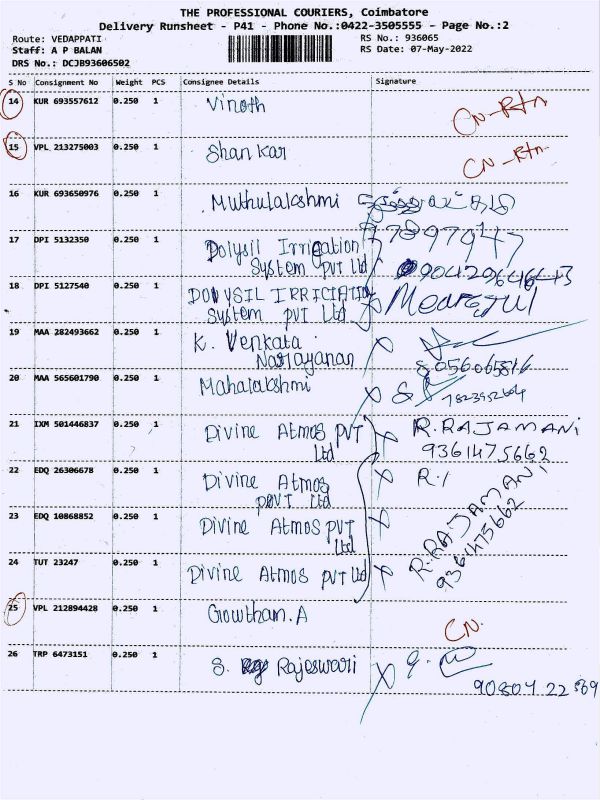 THE PROFESSIONAL COURIERS, Coimbatore
Delivery Runsheet - P41 - Phone No.:0422-3505555 - Page No.:2
Route: VEDAPPATI RS No.: 936065
Staff: A P BALAN RS Date: 07-May-2022
DRS No.: DCJB93606502
S No Consignment No Weight PCS Consignee Details Signature
14 KUR 693557612 0.250 1 Vinoth CN-Rtn
15 VPL 213275003 0.250 1 Shankar CN-Rtn
16 KUR 693650976 0.250 1 Muthulakshmi
17 DPI 5132350 0.250 1 Dolysil Irrigation
System PVT Ltd
18 DPI 5127540 0.250 1 DOLYSIL IRRICIATION
System PVT Ltd
19 MAA 282493662 0.250 1 K. Venkata
Narayanan 8056065816
20 MAA 565601790 0.250 1 Mahalakshmi
21 IXM 501446837 0.250 1 Divine Atmos PVT R.RAJAMANI
Ltd 9361475662
22 EDQ 26306678 0.250 1 Divine Atmos R.
PVT Ltd
23 EDQ 10868852 0.250 1 Divine Atmos PVT R.RAJAMANI
Ltd 9361475662
24 TUT 23247 0.250 1 Divine Atmos PVT Ltd
25 VPL 212894428 0.250 1 Gowtham.A CN.
26 TRP 6473151 0.250 1 S. Rajeswari